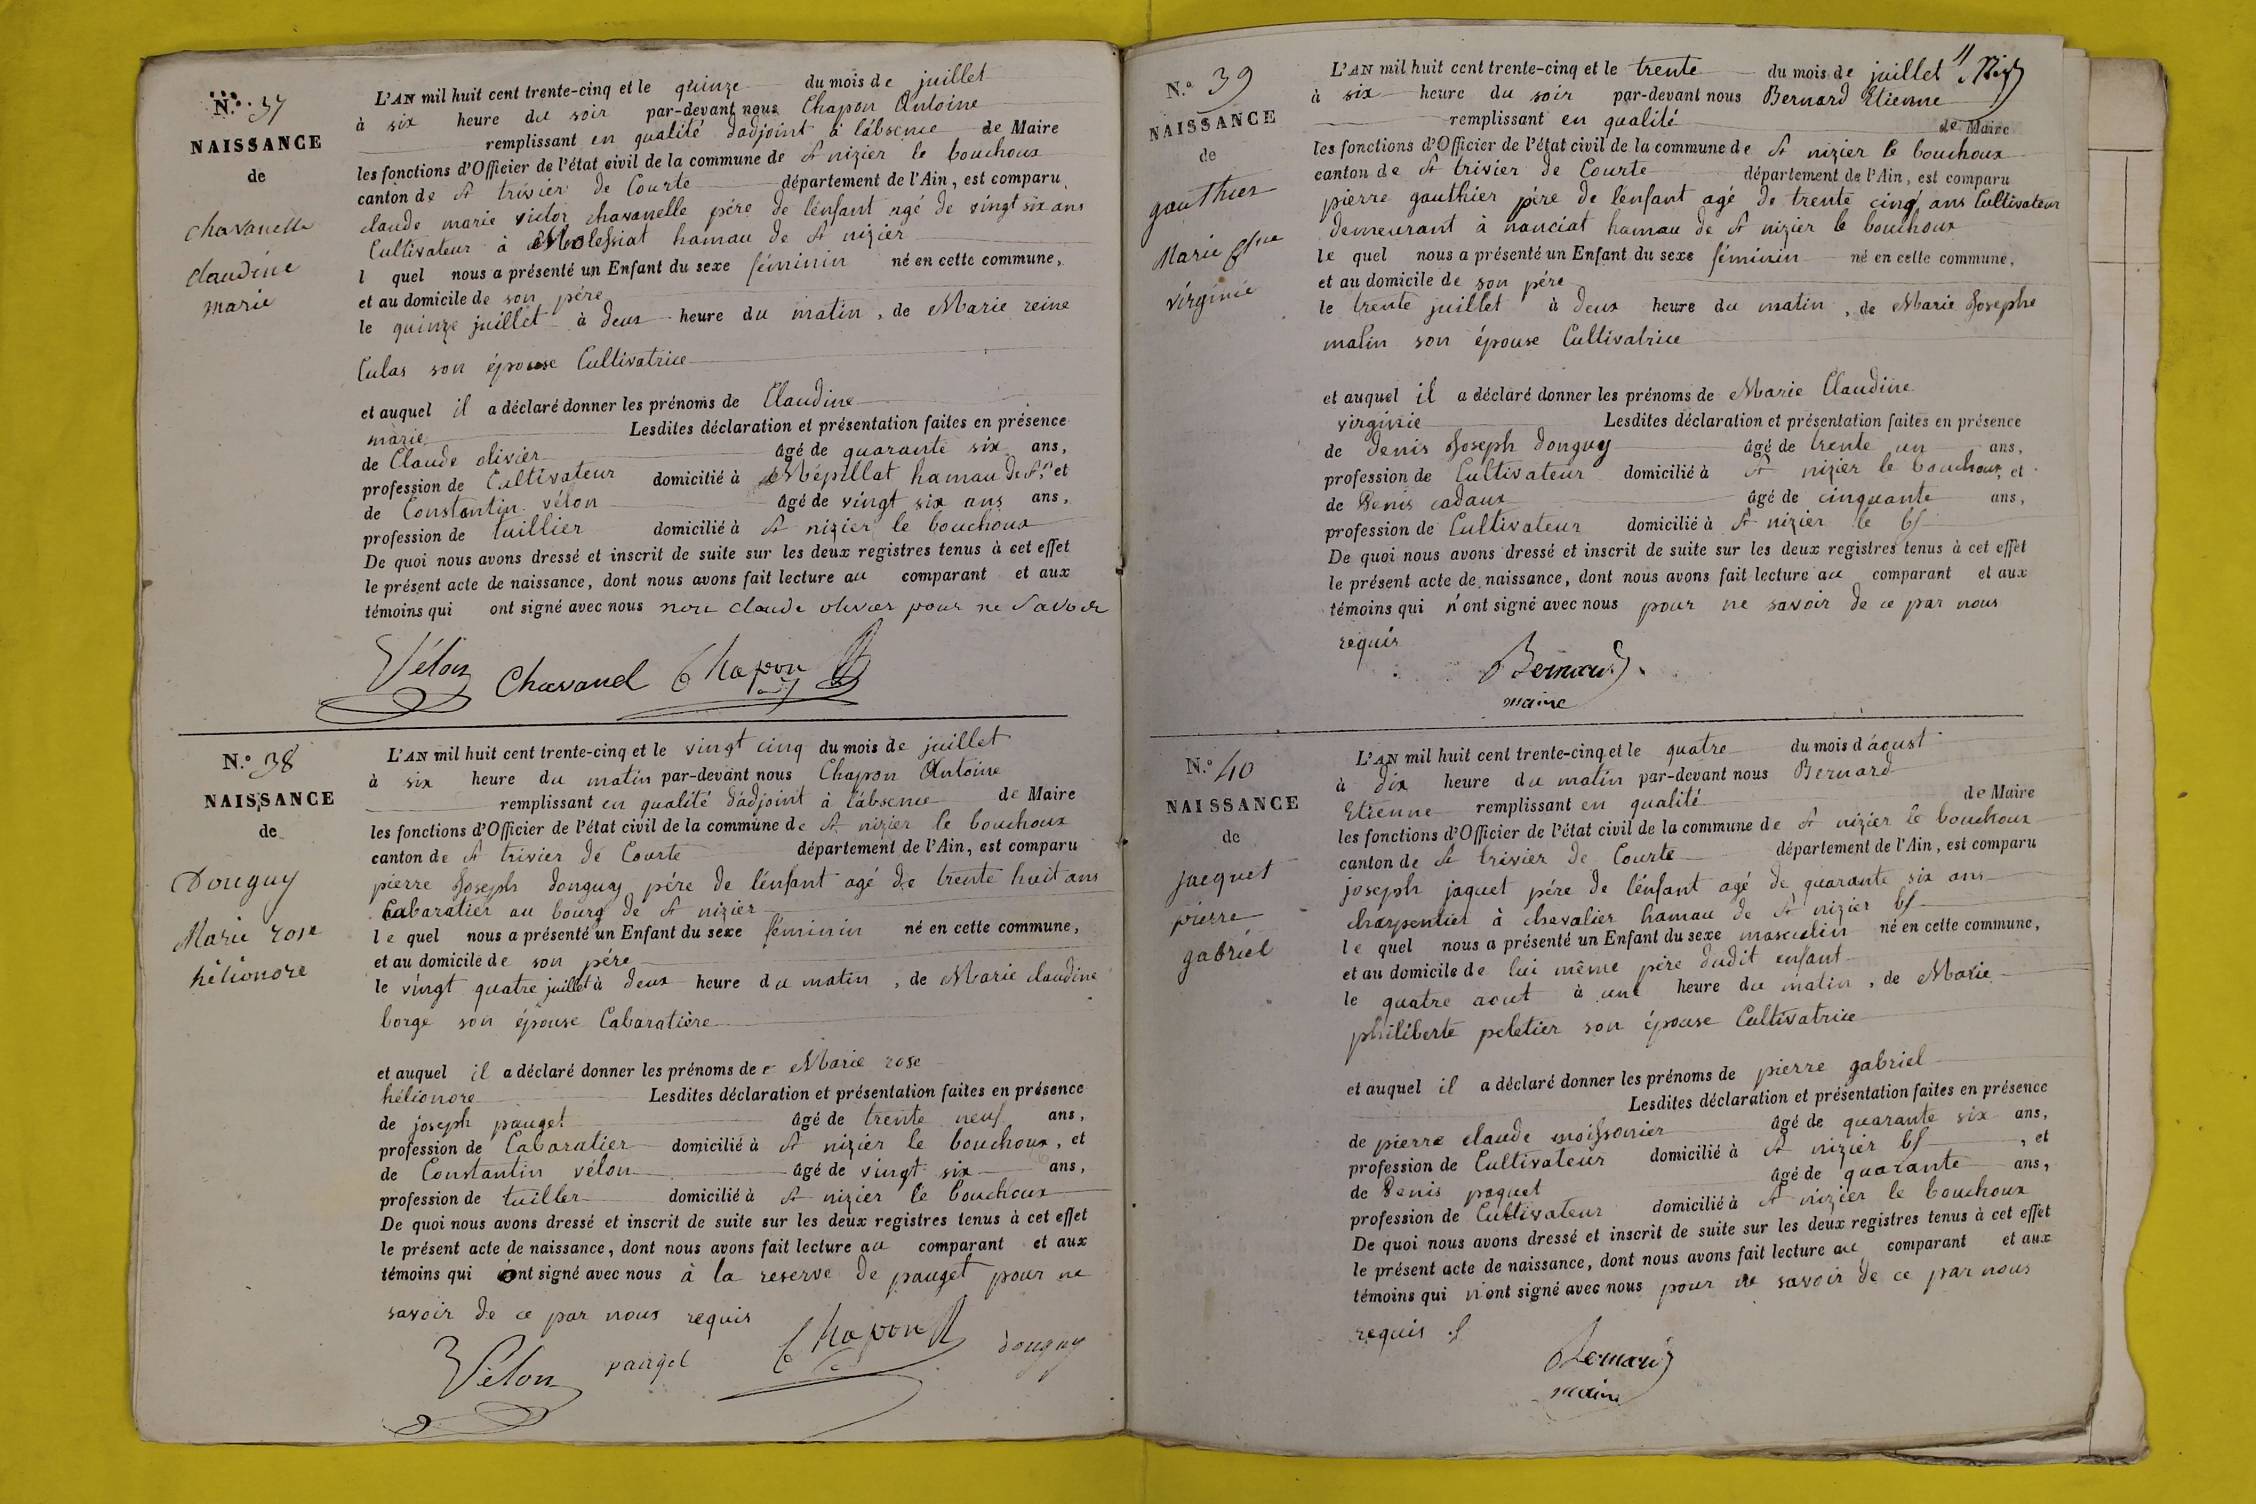 N.º 37
NAISSANCE
de
chavanelle
claudine
marie
L'AN mil huit cent trente-cinq et le quinze du mois de juillet
à six heure du soir par-devant nous Chapon Antoine
remplissant en qualité d'adjoint à l'absence de Maire
les fonctions d'Officier de l'état civil de la commune de St nizier le bouchoux
canton de St trivier de Courte département de l'Ain, est comparu
claude marie victor chavanelle pére de l'énfant agé de vingt six ans
Cultivateur à Molessiat hamau de St nizier
l quel nous a présenté un Enfant du sexe féminin né en cette commune,
et au domicile de son pére
le quinze juillet à deux heure du matin, de Marie reine
Culas son épouse Cultivatrice
et auquel il a déclaré donner les prénoms de Claudine
marie Lesdites déclaration et présentation faites en présence
de Claude olivier âgé de quarante six ans,
profession de Cultivateur domicilié à Mépillat hamau de St, et
de Constantin vélon âgé de vingt six ans ans,
profession de tuillier domicilié à St nizier le bouchoux
De quoi nous avons dressé et inscrit de suite sur les deux registres tenus à cet effet
le présent acte de naissance, dont nous avons fait lecture au comparant et aux
témoins qui ont signé avec nous non claude olivier pour ne savoir
Vélon Chavanel Chapon
N.º 38
NAISSANCE
de
Donguy
Marie rose
hélionore
L'AN mil huit cent trente-cinq et le vingt cinq du mois de juillet
à six heure du matin par-devant nous Chapon Antoine
remplissant en qualité d'adjoint à l'absence de Maire
les fonctions d'Officier de l'état civil de la commune de St nizier le bouchoux
canton de St trivier de Courte département de l'Ain, est comparu
pierre Joseph donguy pére de l'énfant agé de trente huit ans
Cabaratier au bourg de St nizier
le quel nous a présenté un Enfant du sexe féminin né en cette commune,
et au domicile de son pére
le vingt quatre juillet à deux heure du matin, de Marie claudine
borge son épouse Cabaratière
et auquel il a déclaré donner les prénoms de Marie rose
hélionore Lesdites déclaration et présentation faites en présence
de joseph pauget âgé de trente neuf ans,
profession de Cabaratier domicilié à St nizier le bouchoux, et
de Constantin vélon âgé de vingt six ans,
profession de tuiller domicilié à St nizier le bouchoux
De quoi nous avons dressé et inscrit de suite sur les deux registres tenus à cet effet
le présent acte de naissance, dont nous avons fait lecture au comparant et aux
témoins qui ont signé avec nous à la reserve de pauget pour ne
savoir de ce par nous requis
Vélon pauget Chapon donguy
N.º 39
NAISSANCE
de
gauthier
Marie Cne
virginie
L'AN mil huit cent trente-cinq et le trente du mois de juillet
à six heure du soir par-devant nous Bernard Etienne
remplissant en qualité de Maire
les fonctions d'Officier de l'état civil de la commune de St nizier le bouchoux
canton de St trivier de Courte département de l'Ain, est comparu
pierre gauthier pére de l'enfant agé de trente cinq ans Cultivateur
demeurant à nanciat hamau de St nizier le bouchoux
le quel nous a présenté un Enfant du sexe féminin né en cette commune,
et au domicile de son pére
le trente juillet à deux heure du matin, de Marie Josephe
matin son épouse Cultivatrice
et auquel il a déclaré donner les prénoms de Marie Claudine
virginie Lesdites déclaration et présentation faites en présence
de denis Joseph donguy âgé de trente un ans,
profession de Cultivateur domicilié à St nizier le bouchoux, et
de Denis cadaux âgé de cinquante ans,
profession de Cultivateur domicilié à St nizier le bx
De quoi nous avons dressé et inscrit de suite sur les deux registres tenus à cet effet
le présent acte de naissance, dont nous avons fait lecture au comparant et aux
témoins qui n'ont signé avec nous pour ne savoir de ce par nous
requis
Bernard
maire
N.º 40
NAISSANCE
de
jacquet
pierre
gabriel
L'AN mil huit cent trente-cinq et le quatre du mois d'áoust
à dix heure du matin par-devant nous Bernard
Etienne remplissant en qualité de Maire
les fonctions d'Officier de l'état civil de la commune de St nizier le bouchoux
canton de St trivier de Courte département de l'Ain, est comparu
joseph jaquet pére de l'énfant agé de quarante six ans
charpentier à chevalier hamau de St nizier bx
le quel nous a présenté un Enfant du sexe masculin né en cette commune,
et au domicile de lui même père dudit enfant
le quatre aout à une heure du matin, de Marie
philiberte peletier son épouse Cultivatrice
et auquel il a déclaré donner les prénoms de pierre gabriel
Lesdites déclaration et présentation faites en présence
de pierre claude moissonier âgé de quarante six ans,
profession de Cultivateur domicilié à St nizier bx, et
de Denis paquet âgé de quarante ans,
profession de Cultivateur domicilié à St nizier le bouchoux
De quoi nous avons dressé et inscrit de suite sur les deux registres tenus à cet effet
le présent acte de naissance, dont nous avons fait lecture au comparant et aux
témoins qui n'ont signé avec nous pour ne savoir de ce par nous
requis
Bernard
maire